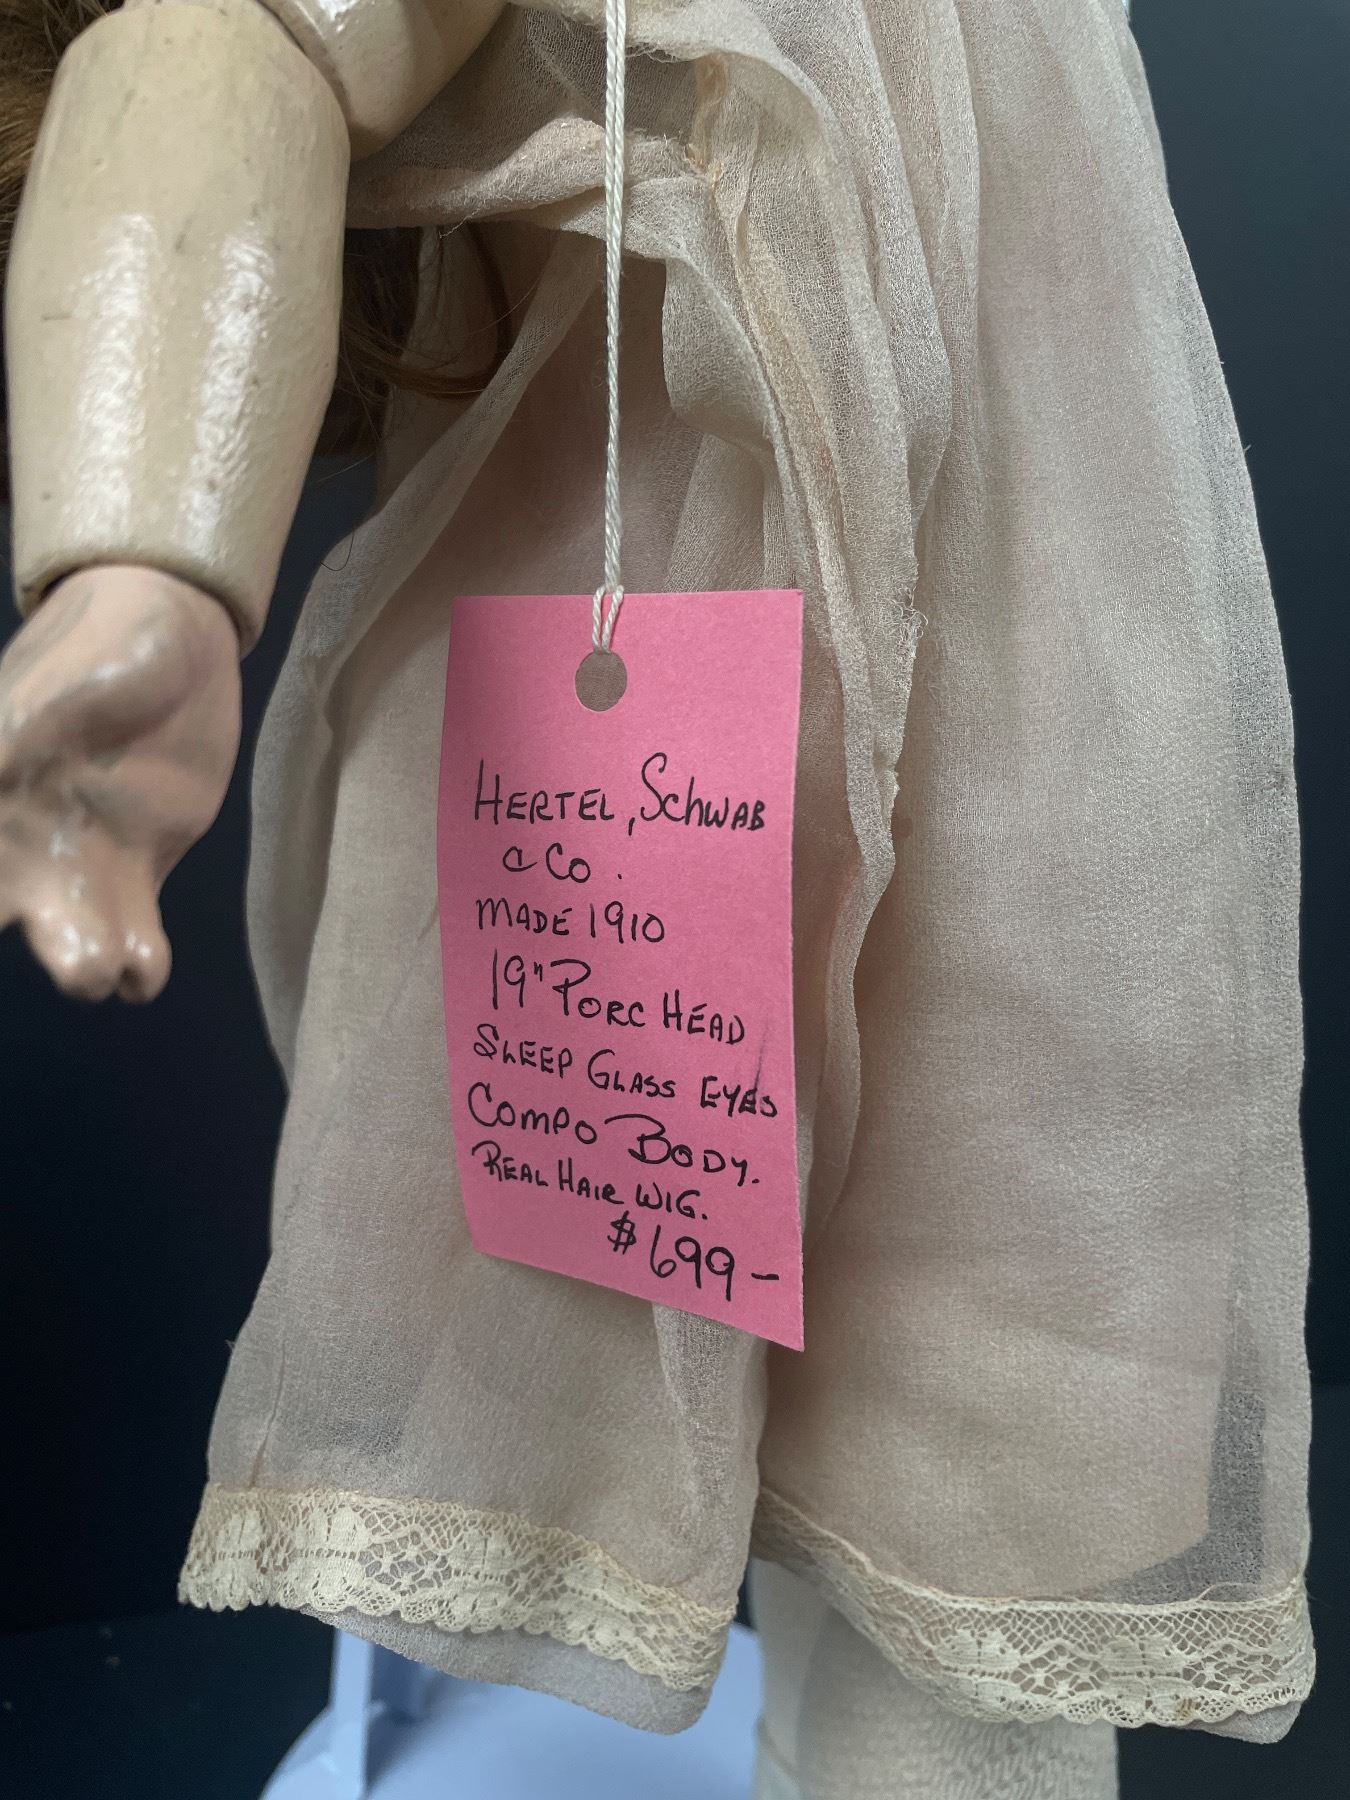 HERTEL, Schwab
& Co.
MADE 1910
19" PORC HEAD
SLEEP GLASS EYES
COMPO BODY.
REAL HAIR WIG.
$699-